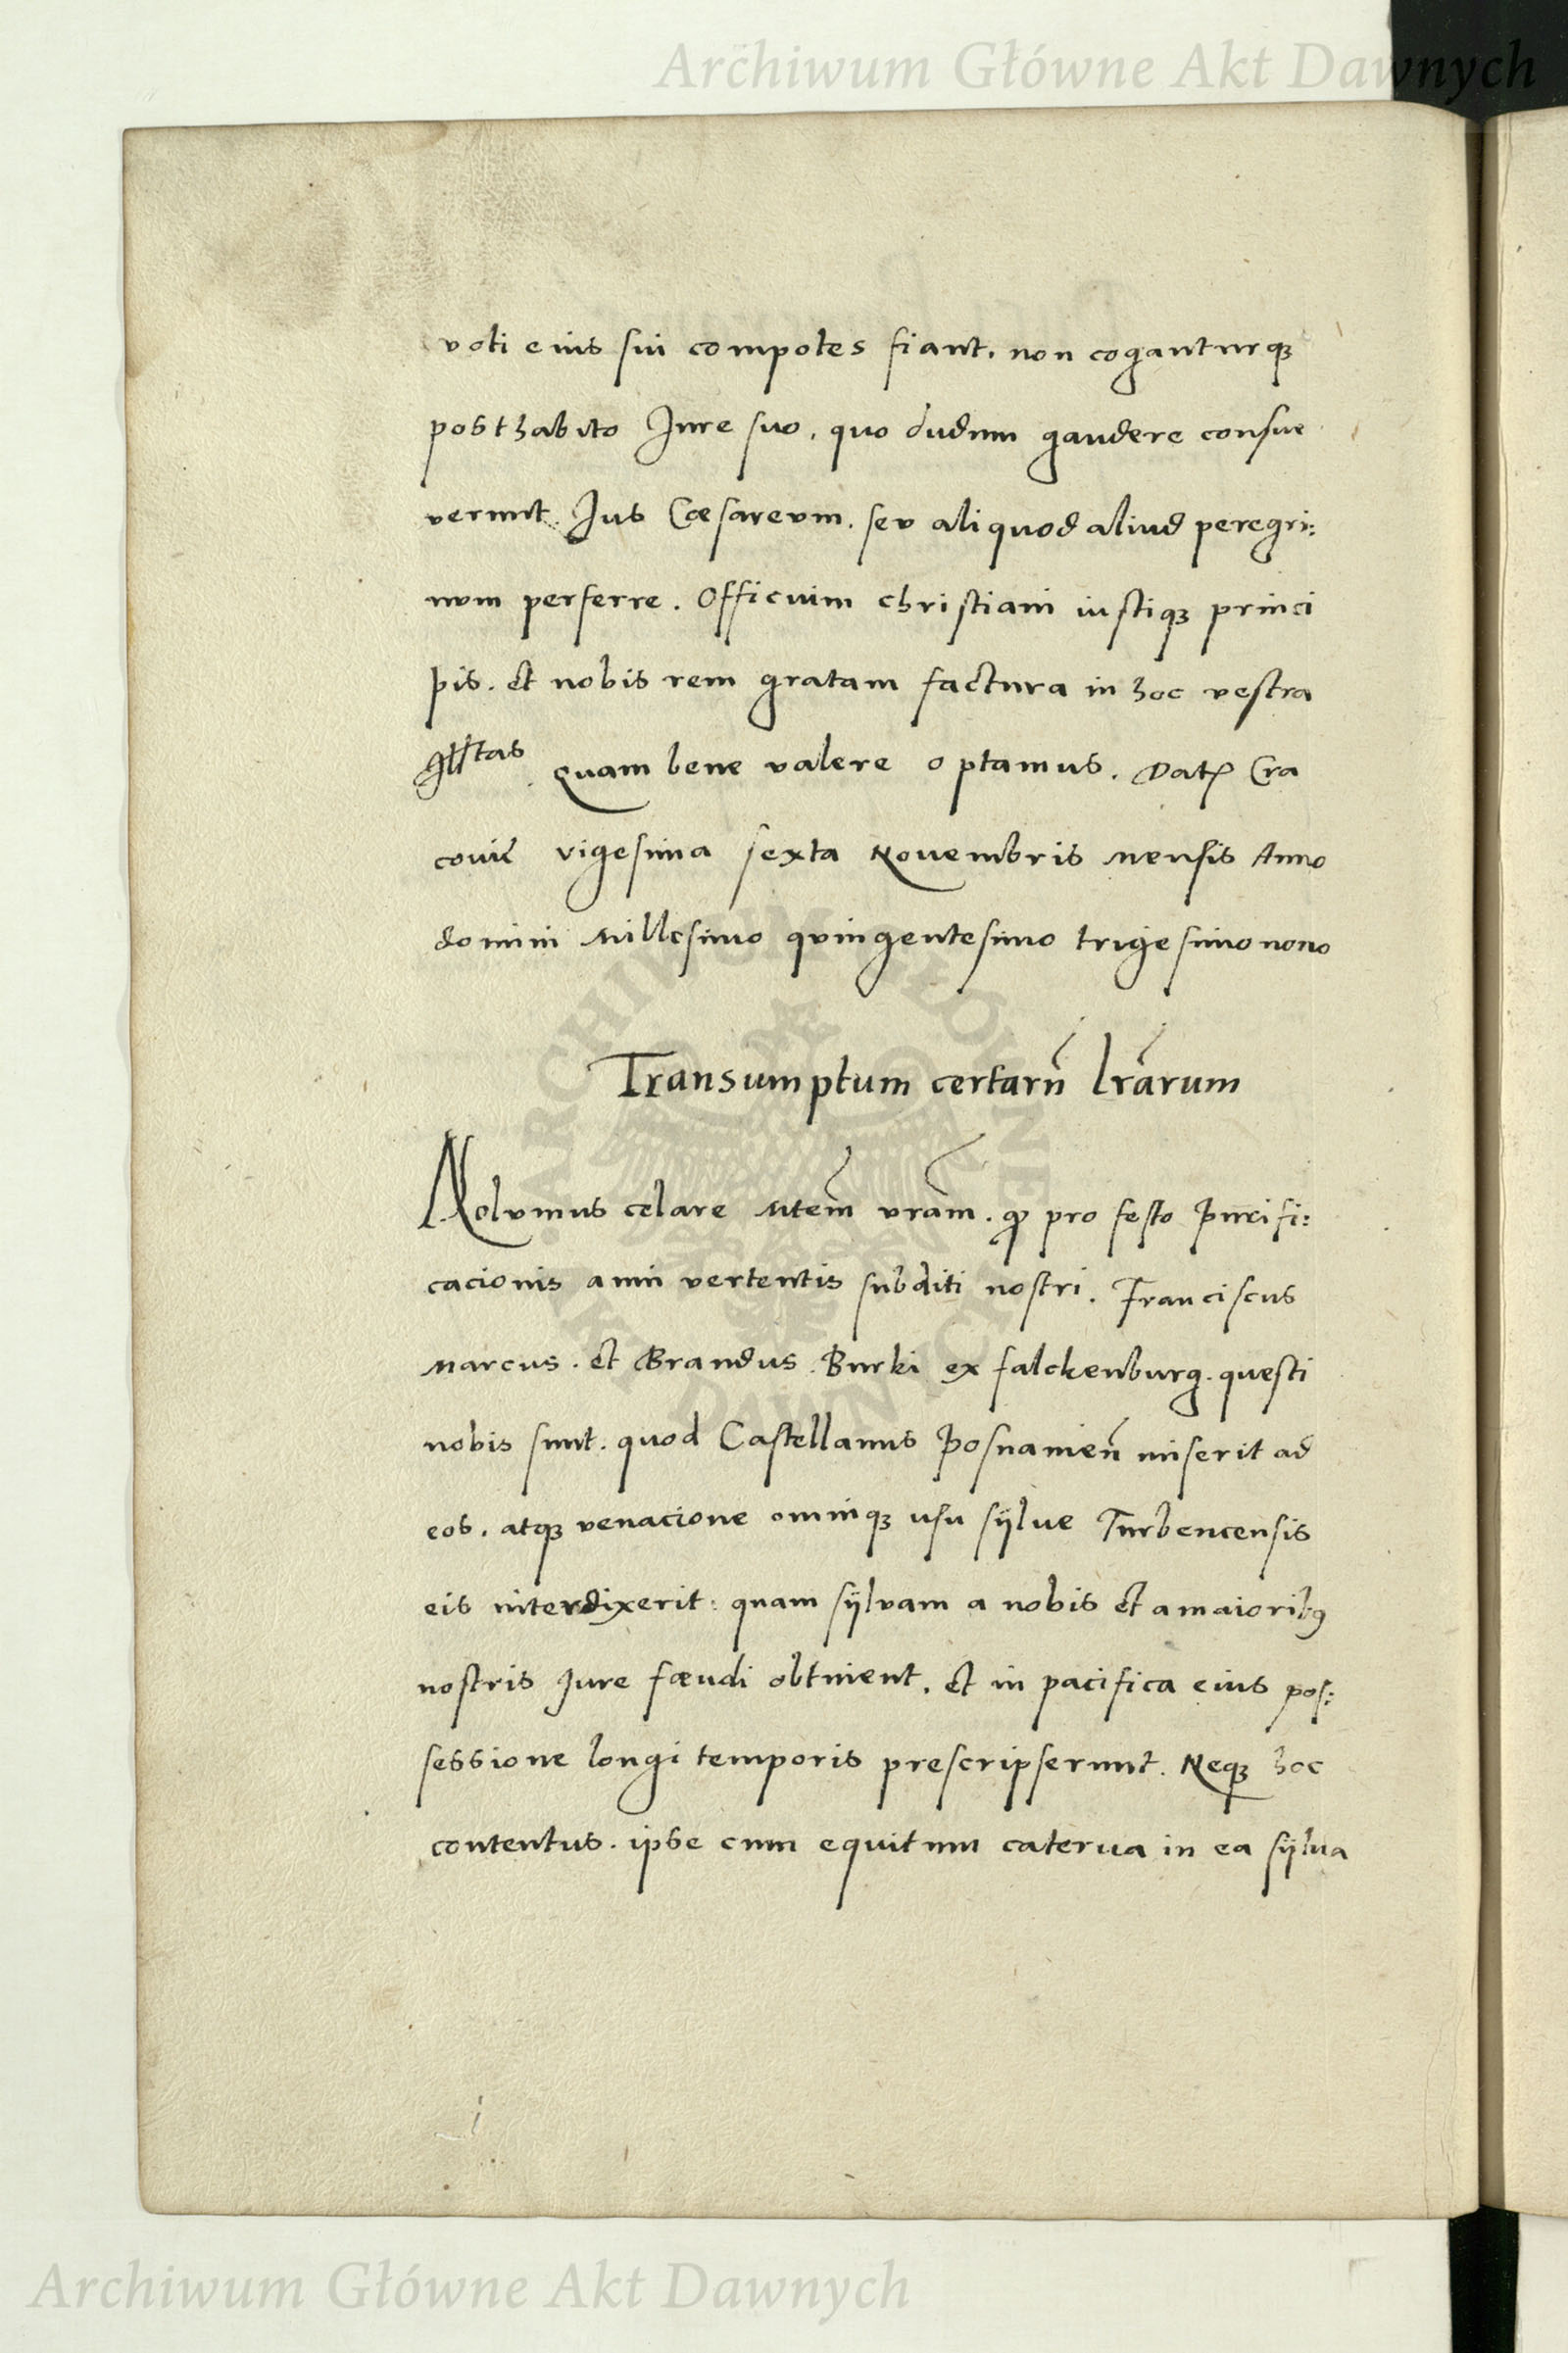 Archiwum Główne Akt Dawnych
voti eius sui compotes fiant. non coganturqȝ
posthabito Jure suo. quo dudum gaudere consue
verunt. Jus Cæsareum. seu aliquod aliud peregri:
num perferre. Officium christiani iustiqȝ princi
pis. et nobis rem gratam factura in hoc vestra
Illtas quam bene valere optamus. Datȝ Cra
covie vigesima sexta Novembris mensis Anno
domini Millesimo quingentesimo trigesimo nono
Transumptum certarū lrārum
Nolumus celare Mtem̄ vrām. qȝ pro festo purifi:
cacionis anni vertentis subditi nostri. Franciscus
Marcus. et Brandus. Burki ex falckenburg. questi
nobis sunt. quod Castellanus Posnanien̄ miserit ad
eos. atqȝ venacione omniqȝ usu sÿlue Turbencensis
eis interdixerit: quam sÿlvam a nobis et a maioribꝰ
nostris Jure fæudi obtinent. et in pacifica eius pos:
sessione longi temporis prescripserunt. Neqȝ hoc
contentus. ipse cum equitum caterua in ea sÿlua
ARCHIWUM GŁÓWNE AKT DAWNYCH
Archiwum Główne Akt Dawnych